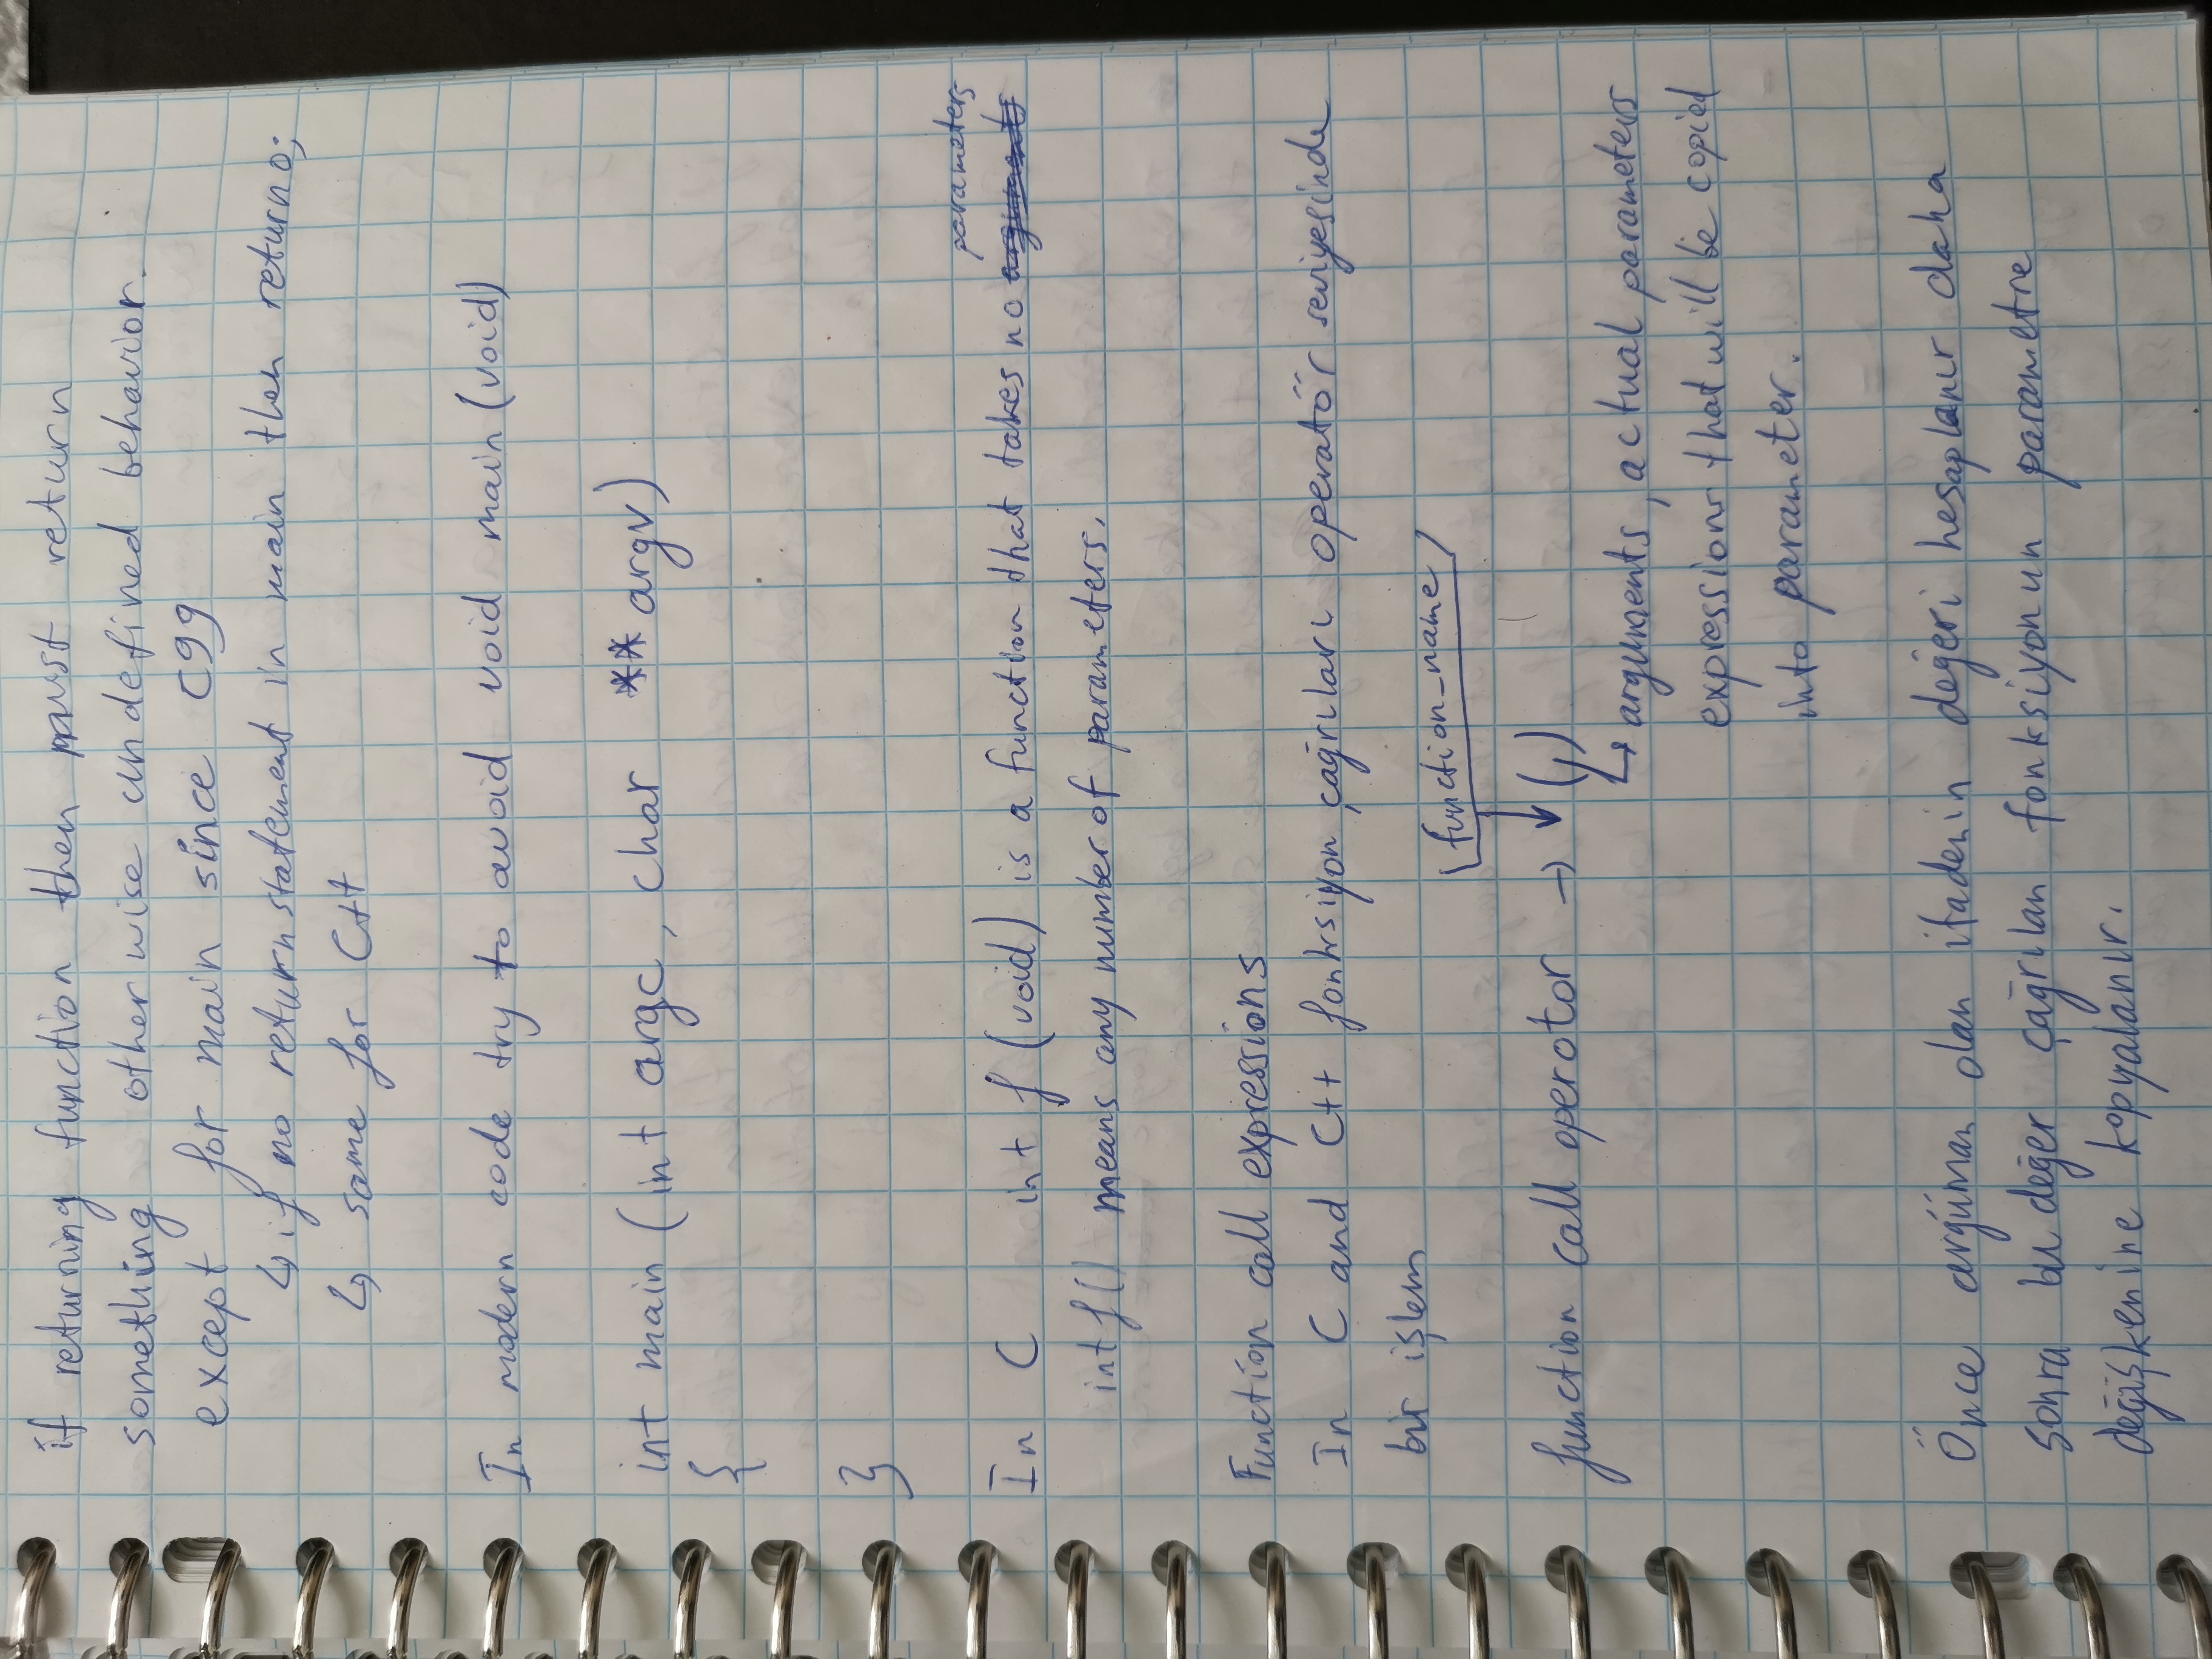 if returning function then must return
something otherwise undefined behavior.
except for main since C99
↳ if no return statement in main then return 0;
↳ same for C++
In modern code try to avoid void main (void)
int main (int argc, char ** argv)
{
}
parameters
In C int f (void) is a function that takes no arguments
int f() means any number of parameters.
Function call expressions
In C and C++ fonksiyon çağrıları operatör seviyesinde
bir işlem
function_name
function call operator → (,)
↳ arguments, actual parameters
expressions that will be copied
into parameter.
Önce argüman olan ifadenin değeri hesaplanır daha
sonra bu değer çağrılan fonksiyonun parametre
değişkenine kopyalanır.